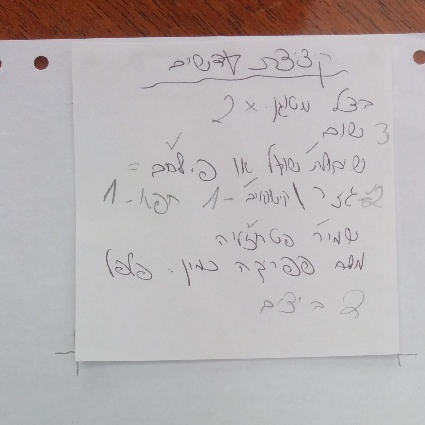 קציצות עדשים
בצל מטוגן × 2
3 שום
שיבולת שועל או פי.לחם =
2 - גזר \ קישואים - 1 תפוא - 1
שמיר פטרוזיליה
מלח פפריקה כמון . פלפל
2 ביצים